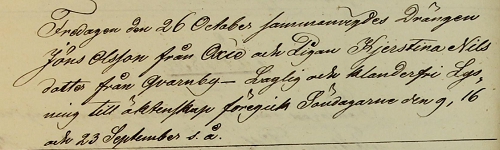 Fredagen den 26 October sammanvigdes Drängen
Jöns Olsson från Oxie och Pigan Kjerstina Nils
dotter från Qvarnby – Laglig och klanderfri Lys-
ning till äktenskap föregick Söndagarne den 9, 16
och 23 September s. å.